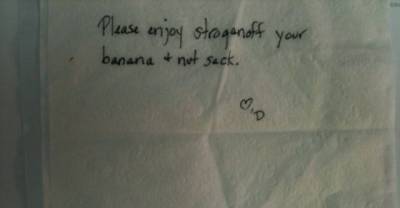 Please enjoy stroganoff your
banana + nut sack.
♡, D